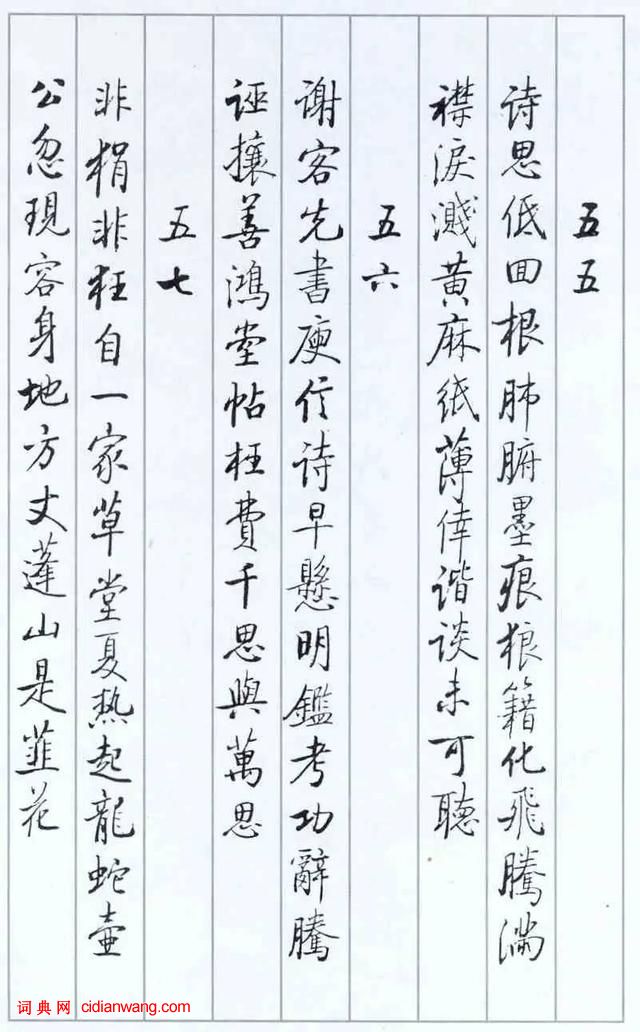 五五
诗思低回根肺腑墨痕狼籍化飛騰满
襟淚濺黄麻纸薄倖谐谈未可聽
五六
谢客先書庾信诗早懸明鑑考功辭騰
诬攘善鴻堂帖枉費千思與萬思
五七
非狷非狂自一家草堂夏热起龍蛇壶
公忽現容身地方丈蓬山是韮花
词典网 cidianwang.com